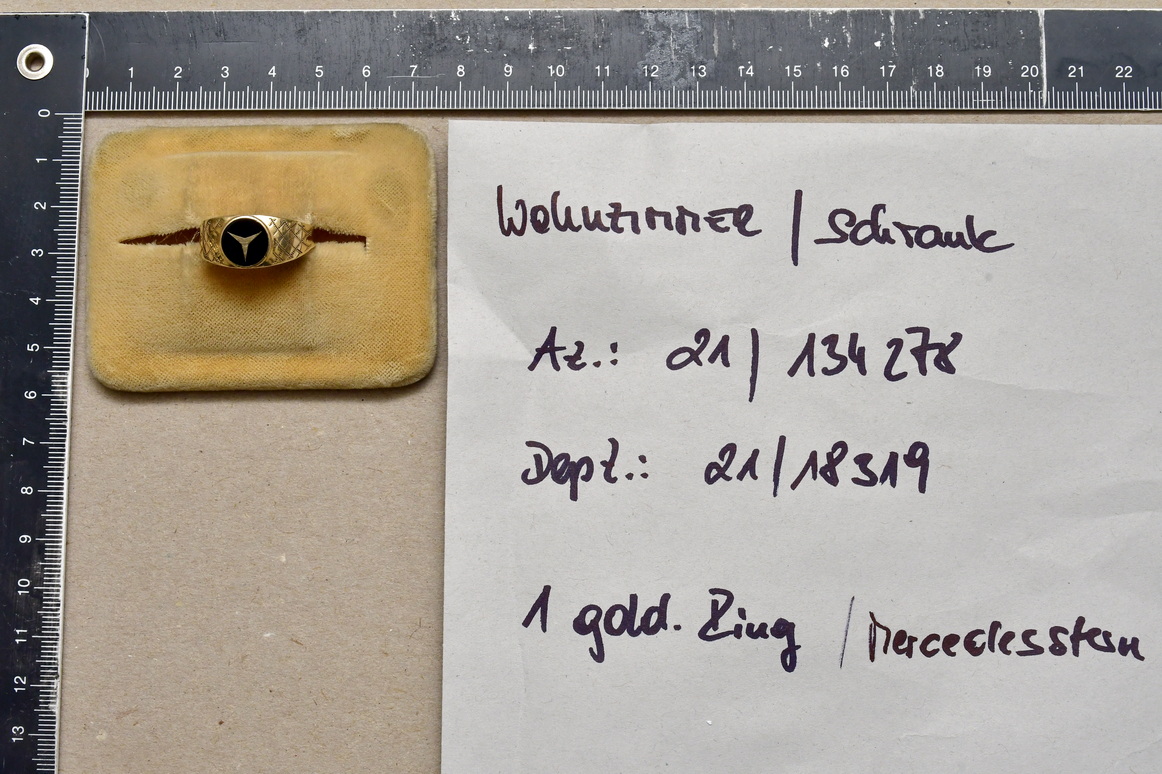 1 2 3 4 5 6 7 8 9 10 11 12 13 14 15 16 17 18 19 20 21 22
0 1 2 3 4 5 6 7 8 9 10 11 12 13
Wohnzimmer / Schrank
Az.: 21 / 134 278
Depz.: 21 / 18319
1 gold. Ring / Mercedesstern